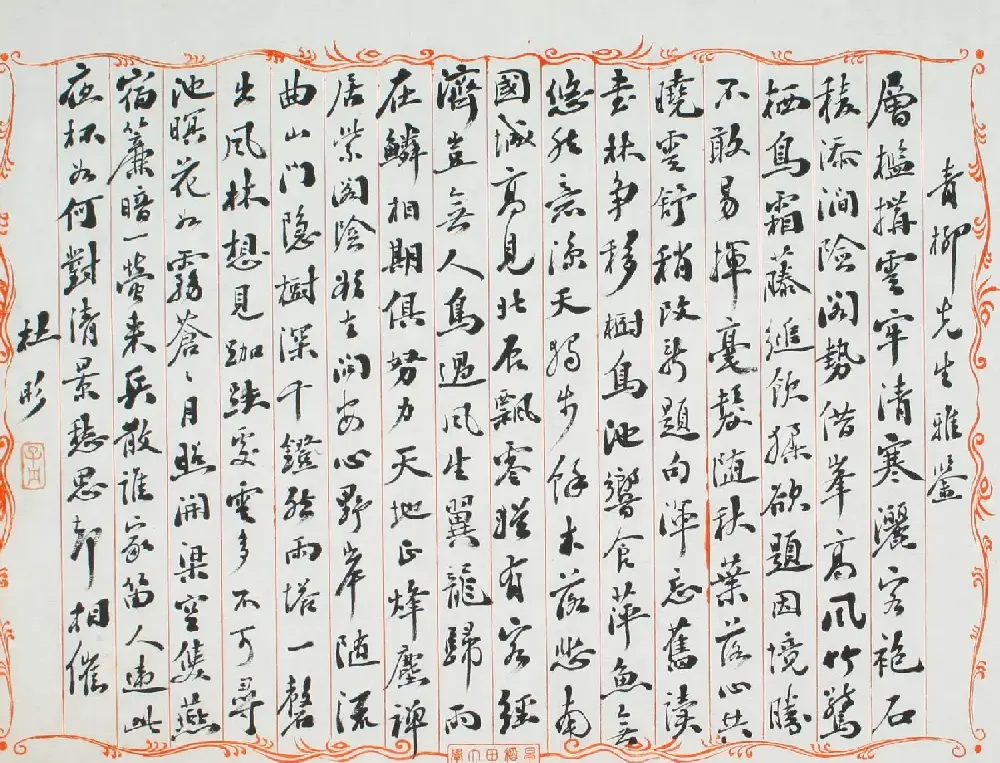 青柳先生雅鉴
層槛搆雲牢清寒灑客袍石
稜添澗險閣勢借峯高風竹驚
栖鳥霜藤縋飲猱欲題因境勝
不敢易揮毫鬢随秋葉落心共
曉雲舒稍改新題句渾忘舊讀
書林争移樹鳥池響食萍魚無
悠然意天獨步餘木落悲南
國城高見北辰飄零猶有客經
濟豈無人鳥過風生翼龍歸雨
在鱗相期俱努力天地正烽塵禅
居紫閣陰欲去问安心野岸随流
曲山门隐樹深千鐙殘雨塔一磬
出风林想見跏趺處雲多不可尋
池暝花如霧蒼々月照開梁空雙燕
宿簾暗一螢来兵散誰家笛人違此
夜杯如何對清景愁思却相催
杜彤
早稻田大學